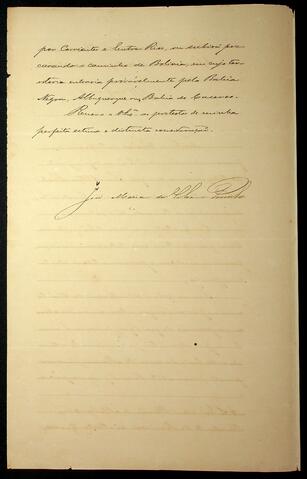 por Corrientes e Entre Rios, ou subirá pro
curando o caminho de Bolivia, em cujo ter-
ritorio entraria provavelmente pela Bahia
Negra, Albuquerque ou Bahia de Caceres.
Renovo a VEx. os protestos de minha
perfeita estima e distincta consideração.
José Maria da Silva Paranhos